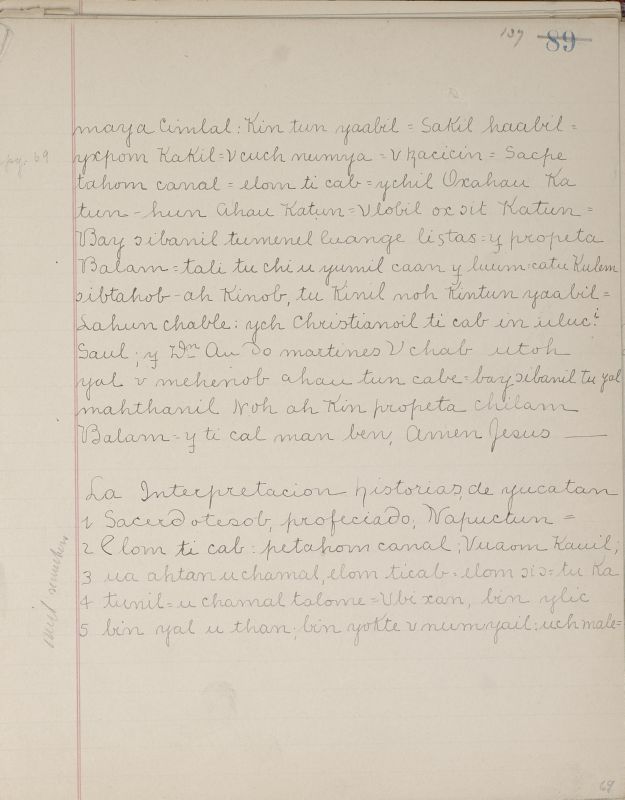 137 89
maya Cimlal: Kin tun yaabil = Sakil haabil =
pg. 69
yxpom KaKil = V cuch numya = V kacicin = Sacpe
tahom canal = elom ti cab = ychil Oxahau Ka
tun - hun Ahau Katun = Vlobil ox sit Katun =
Bay sibanil tumenel luange listas = y propeta
Balam = tali tu chi u yumil caan y luum: catu Kulem
sibtahob - ah Kinob, tu Kinil noh Kintun yaabil =
Lahun chable: ych Christianoil ti cab in uluci
Saul; y Dn An do martines V chab utoh
yal v mehenob ahau tun cabe = bay sibanil tu yal
mahthanil Noh ah Kin propeta chilam
Balam = y ti cal man ben, Amen Jesus —
La Interpretacion historias, de yucatan
1 Sacerdotesob, profeciado, Napuctun =
2 Elom ti cab: petahom canal; Vuaom Kauil;
3 ua ahtan u chamal, elom ticab = elom sis = tu Ka
4 tunil = u chamal talome = Vbixan, bin ylic
5 bin yal u than; bin yokte v num yail: uch male =
69